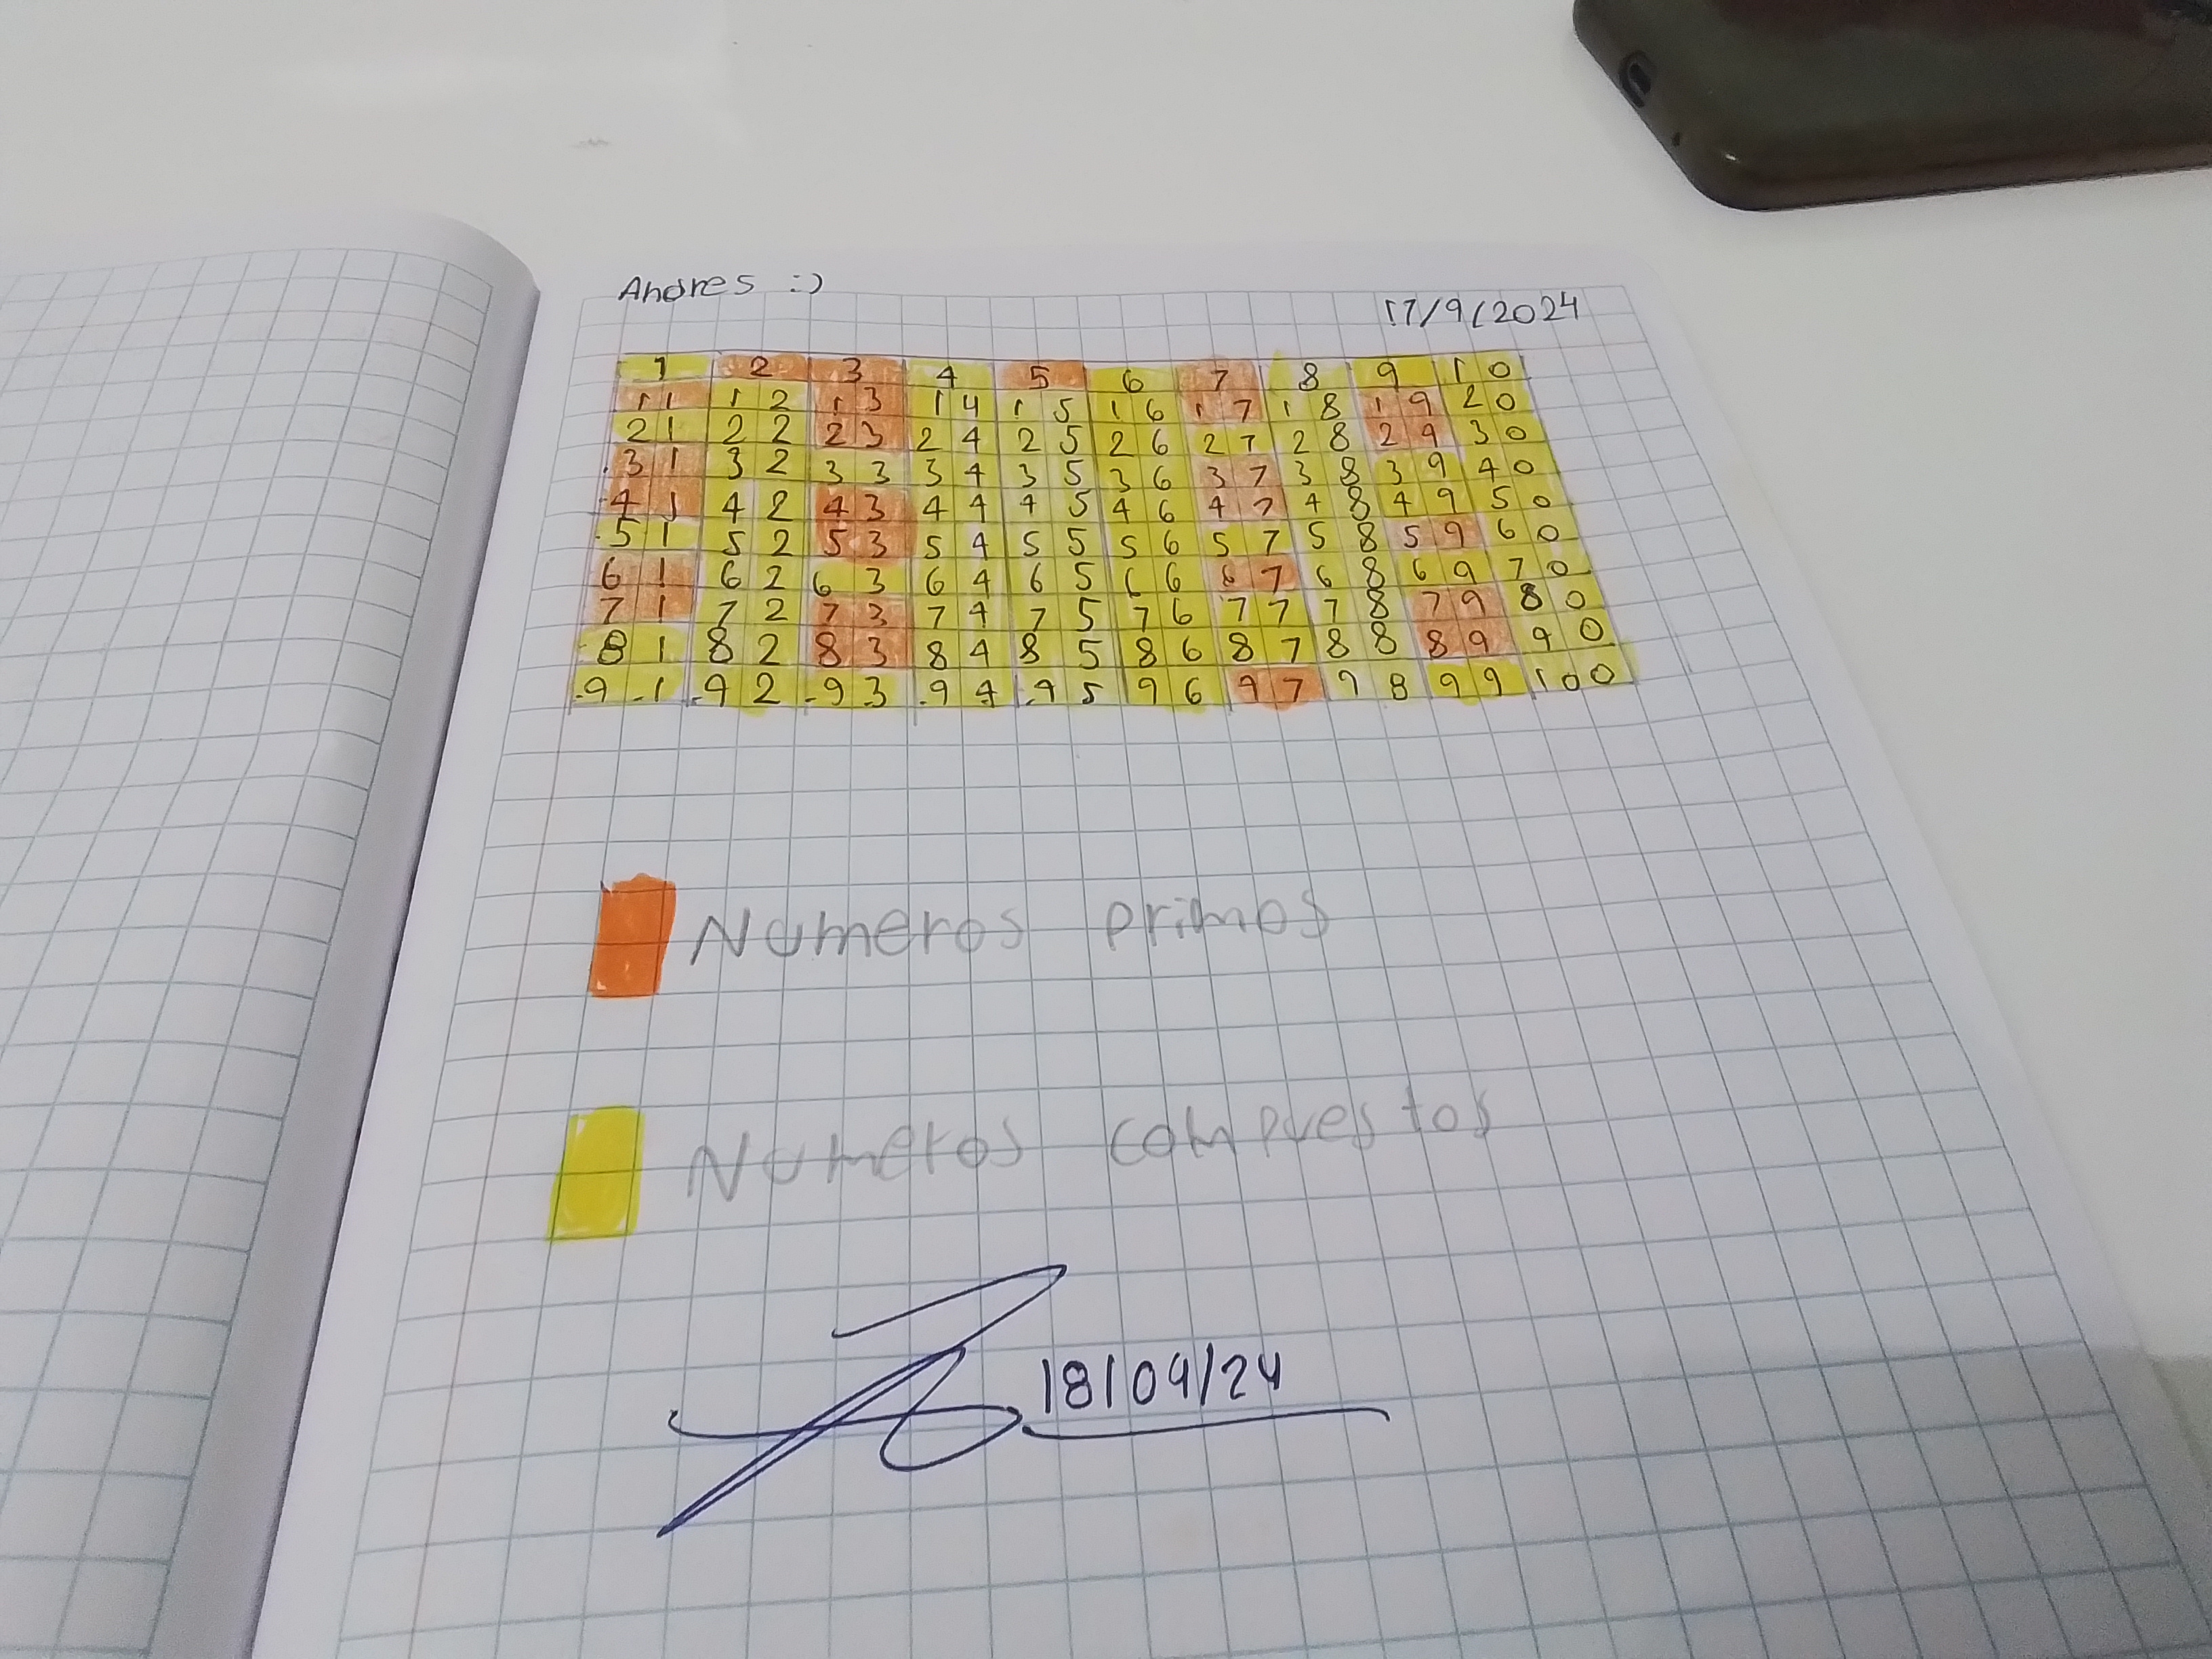 Andres :)
17/9/2024
1 2 3 4 5 6 7 8 9 10
11 12 13 14 15 16 17 18 19 20
21 22 23 24 25 26 27 28 29 30
31 32 33 34 35 36 37 38 39 40
41 42 43 44 45 46 47 48 49 50
51 52 53 54 55 56 57 58 59 60
61 62 63 64 65 66 67 68 69 70
71 72 73 74 75 76 77 78 79 80
81 82 83 84 85 86 87 88 89 90
91 92 93 94 95 96 97 98 99 100
Numeros primos
Numeros compuestos
18/09/24